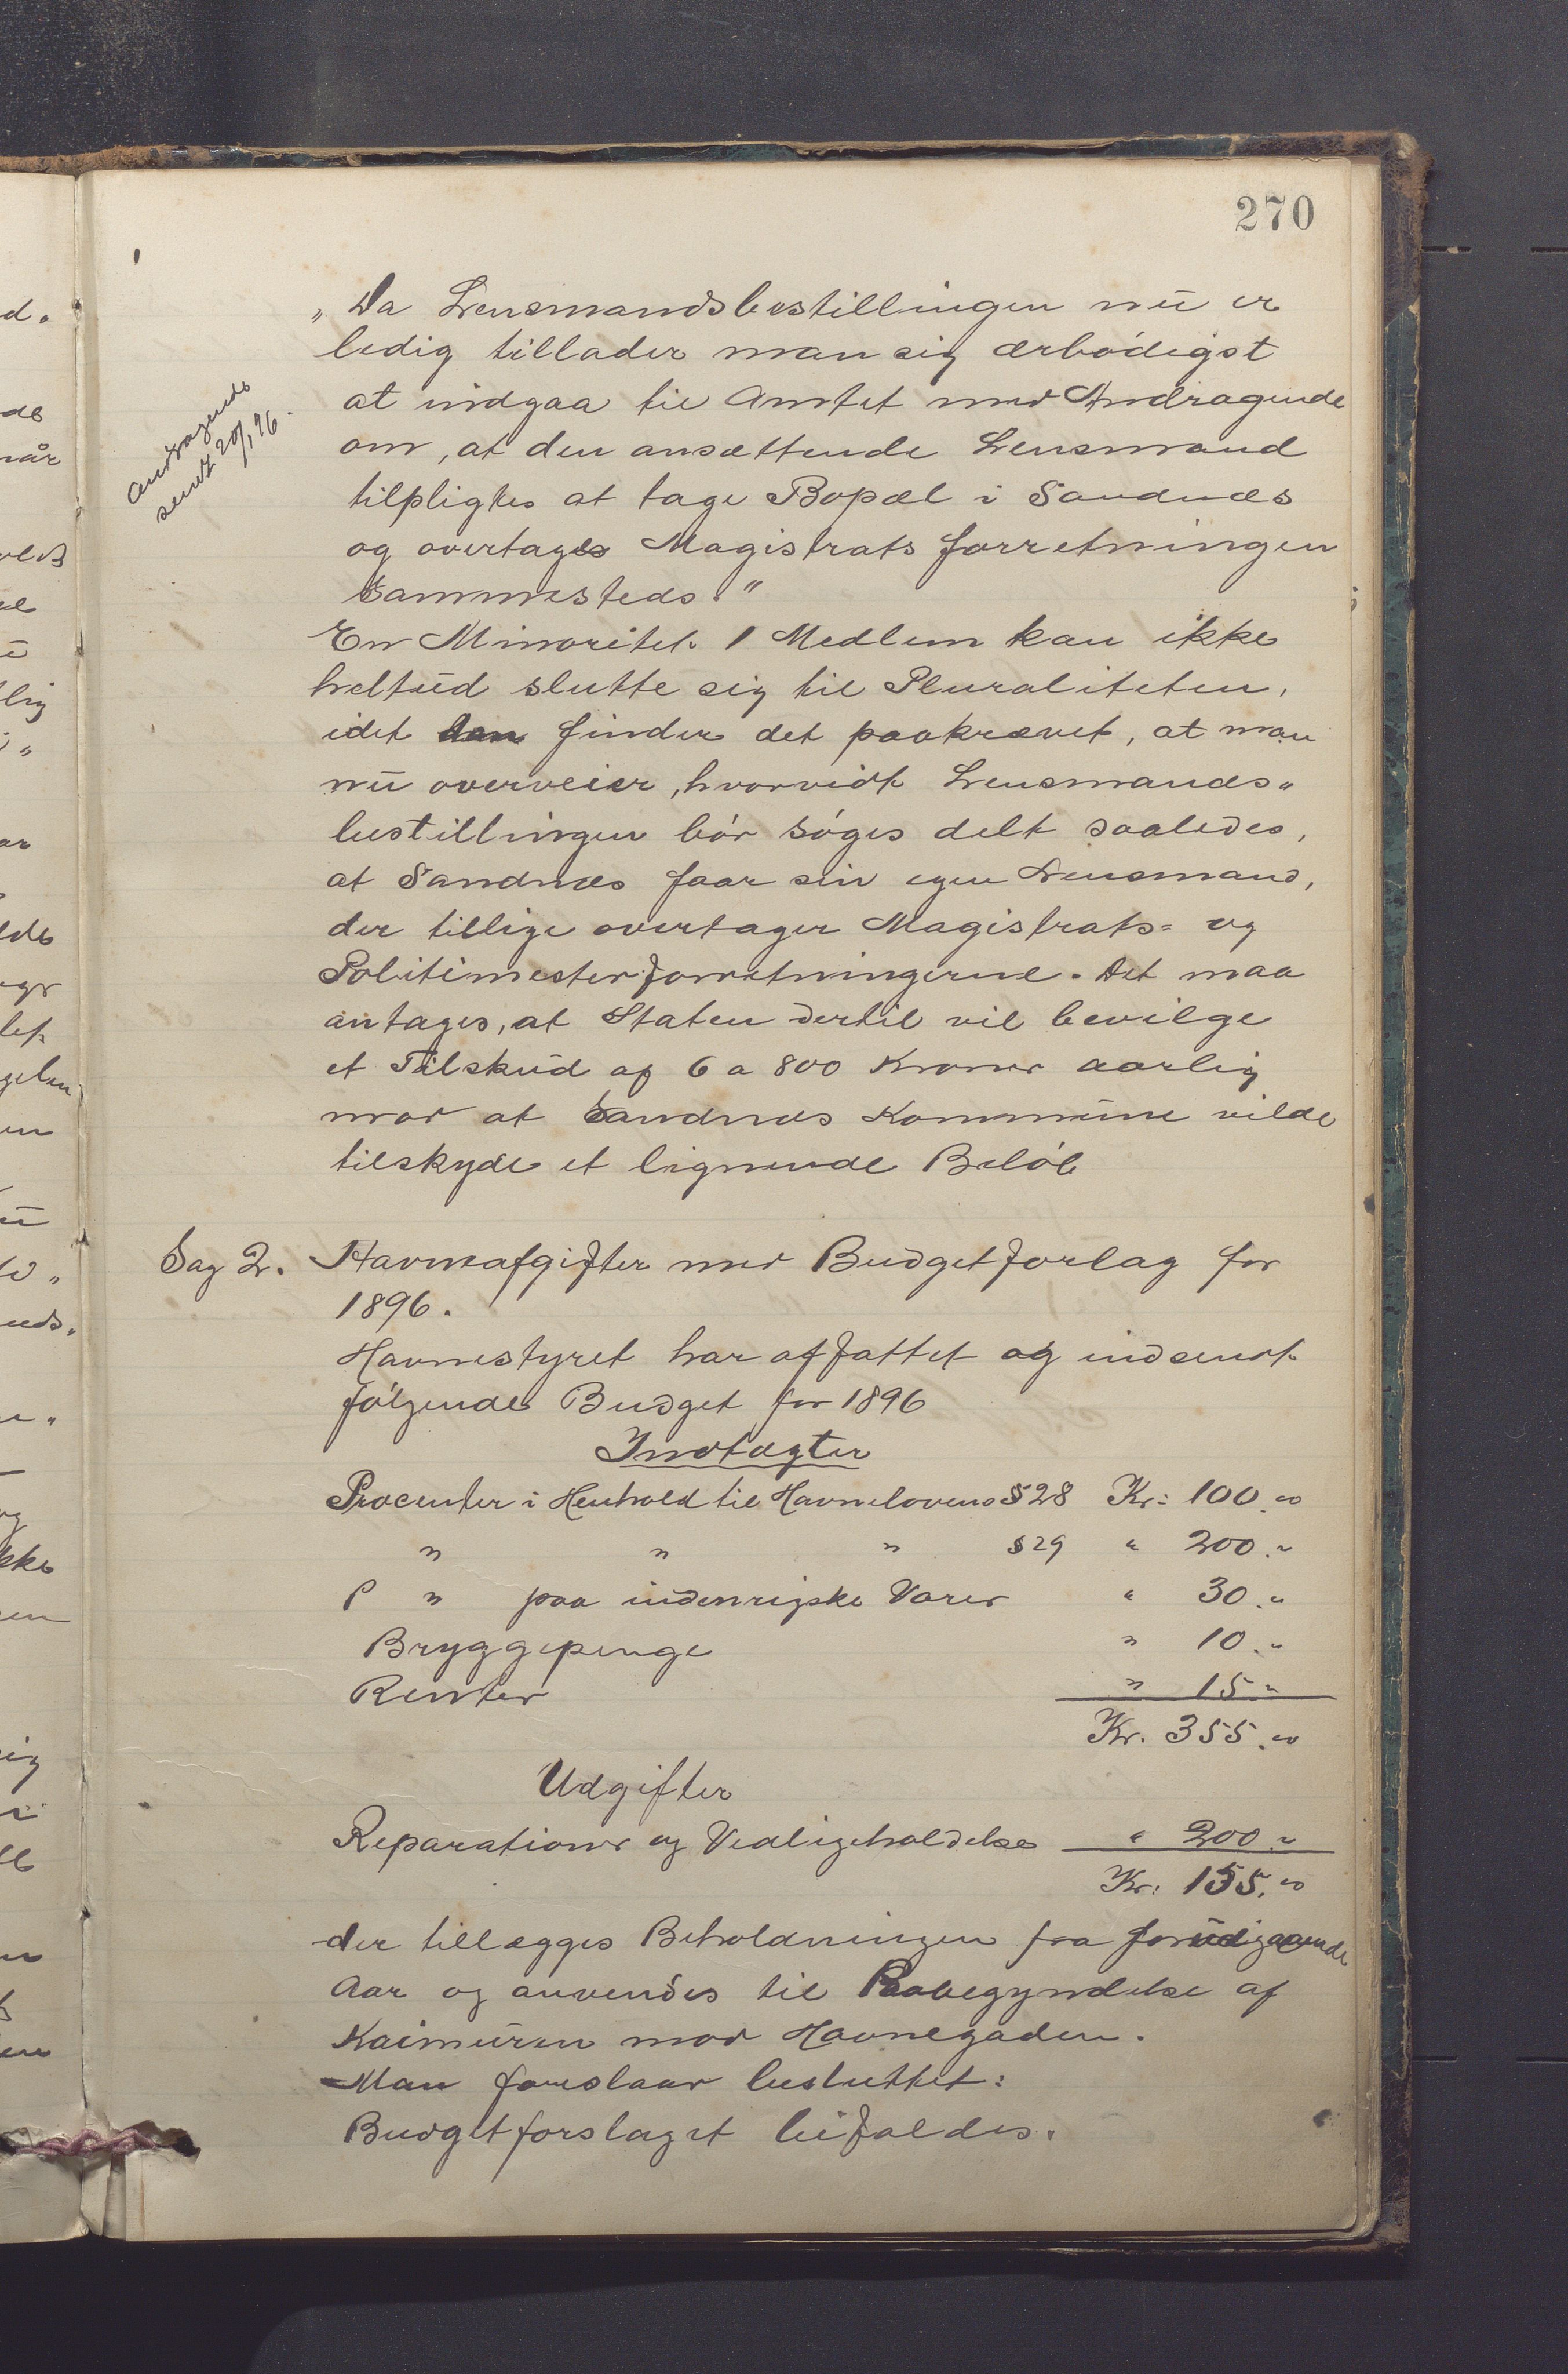 270
„Da Lensmandsbestillingen nu er
ledig tillader man sig ærbødigst
at indgaa til Amtet med Andragende
om, at den ansættende Lensmand
tilpligtes at tage Bopæl i Sandnæs
og overtage Magistrats forretningen
sammesteds."
Andragende
sendt 20/1 96.
En Minoritet 1 Medlem kan ikke
heltud slutte sig til Pluraliteten,
idet den finder det paakrævet, at man
nu overveier, hvorvidt Lensmands„
bestillingen bør søges delt saaledes,
at Sandnæs faar sin egen Lensmand,
der tillige overtager Magistrats= og
Politimesterforretningerne. Det maa
antages, at Staten dertil vil bevilge
et Tilskud af 6 a 800 Kroner aarlig
mod at Sandnæs Kommune vilde
tilskyde et lignende Beløb
Sag 2. Havneafgifter med Budgetforlag for
1896.
Havnestyret har affattet og indsendt
følgende Budget for 1896
Indtægter
Procenter i Henhold til Havnelovens § 28 Kr: 100.00
" " " § 29 " 200."
P " paa indenrigske Varer " 30."
Bryggepenge " 10."
Renter " 15"
Kr. 355.00
Udgifter
Reparationer og Vedligeholdelse " 200."
Kr: 155.00
der tillægges Beholdningen fra forudigaaende
Aar og anvendes til Paabegyndelse af
Kaimuren mod Havnegaden.
Man foreslaar besluttet:
Budgetforslaget bifaldes.